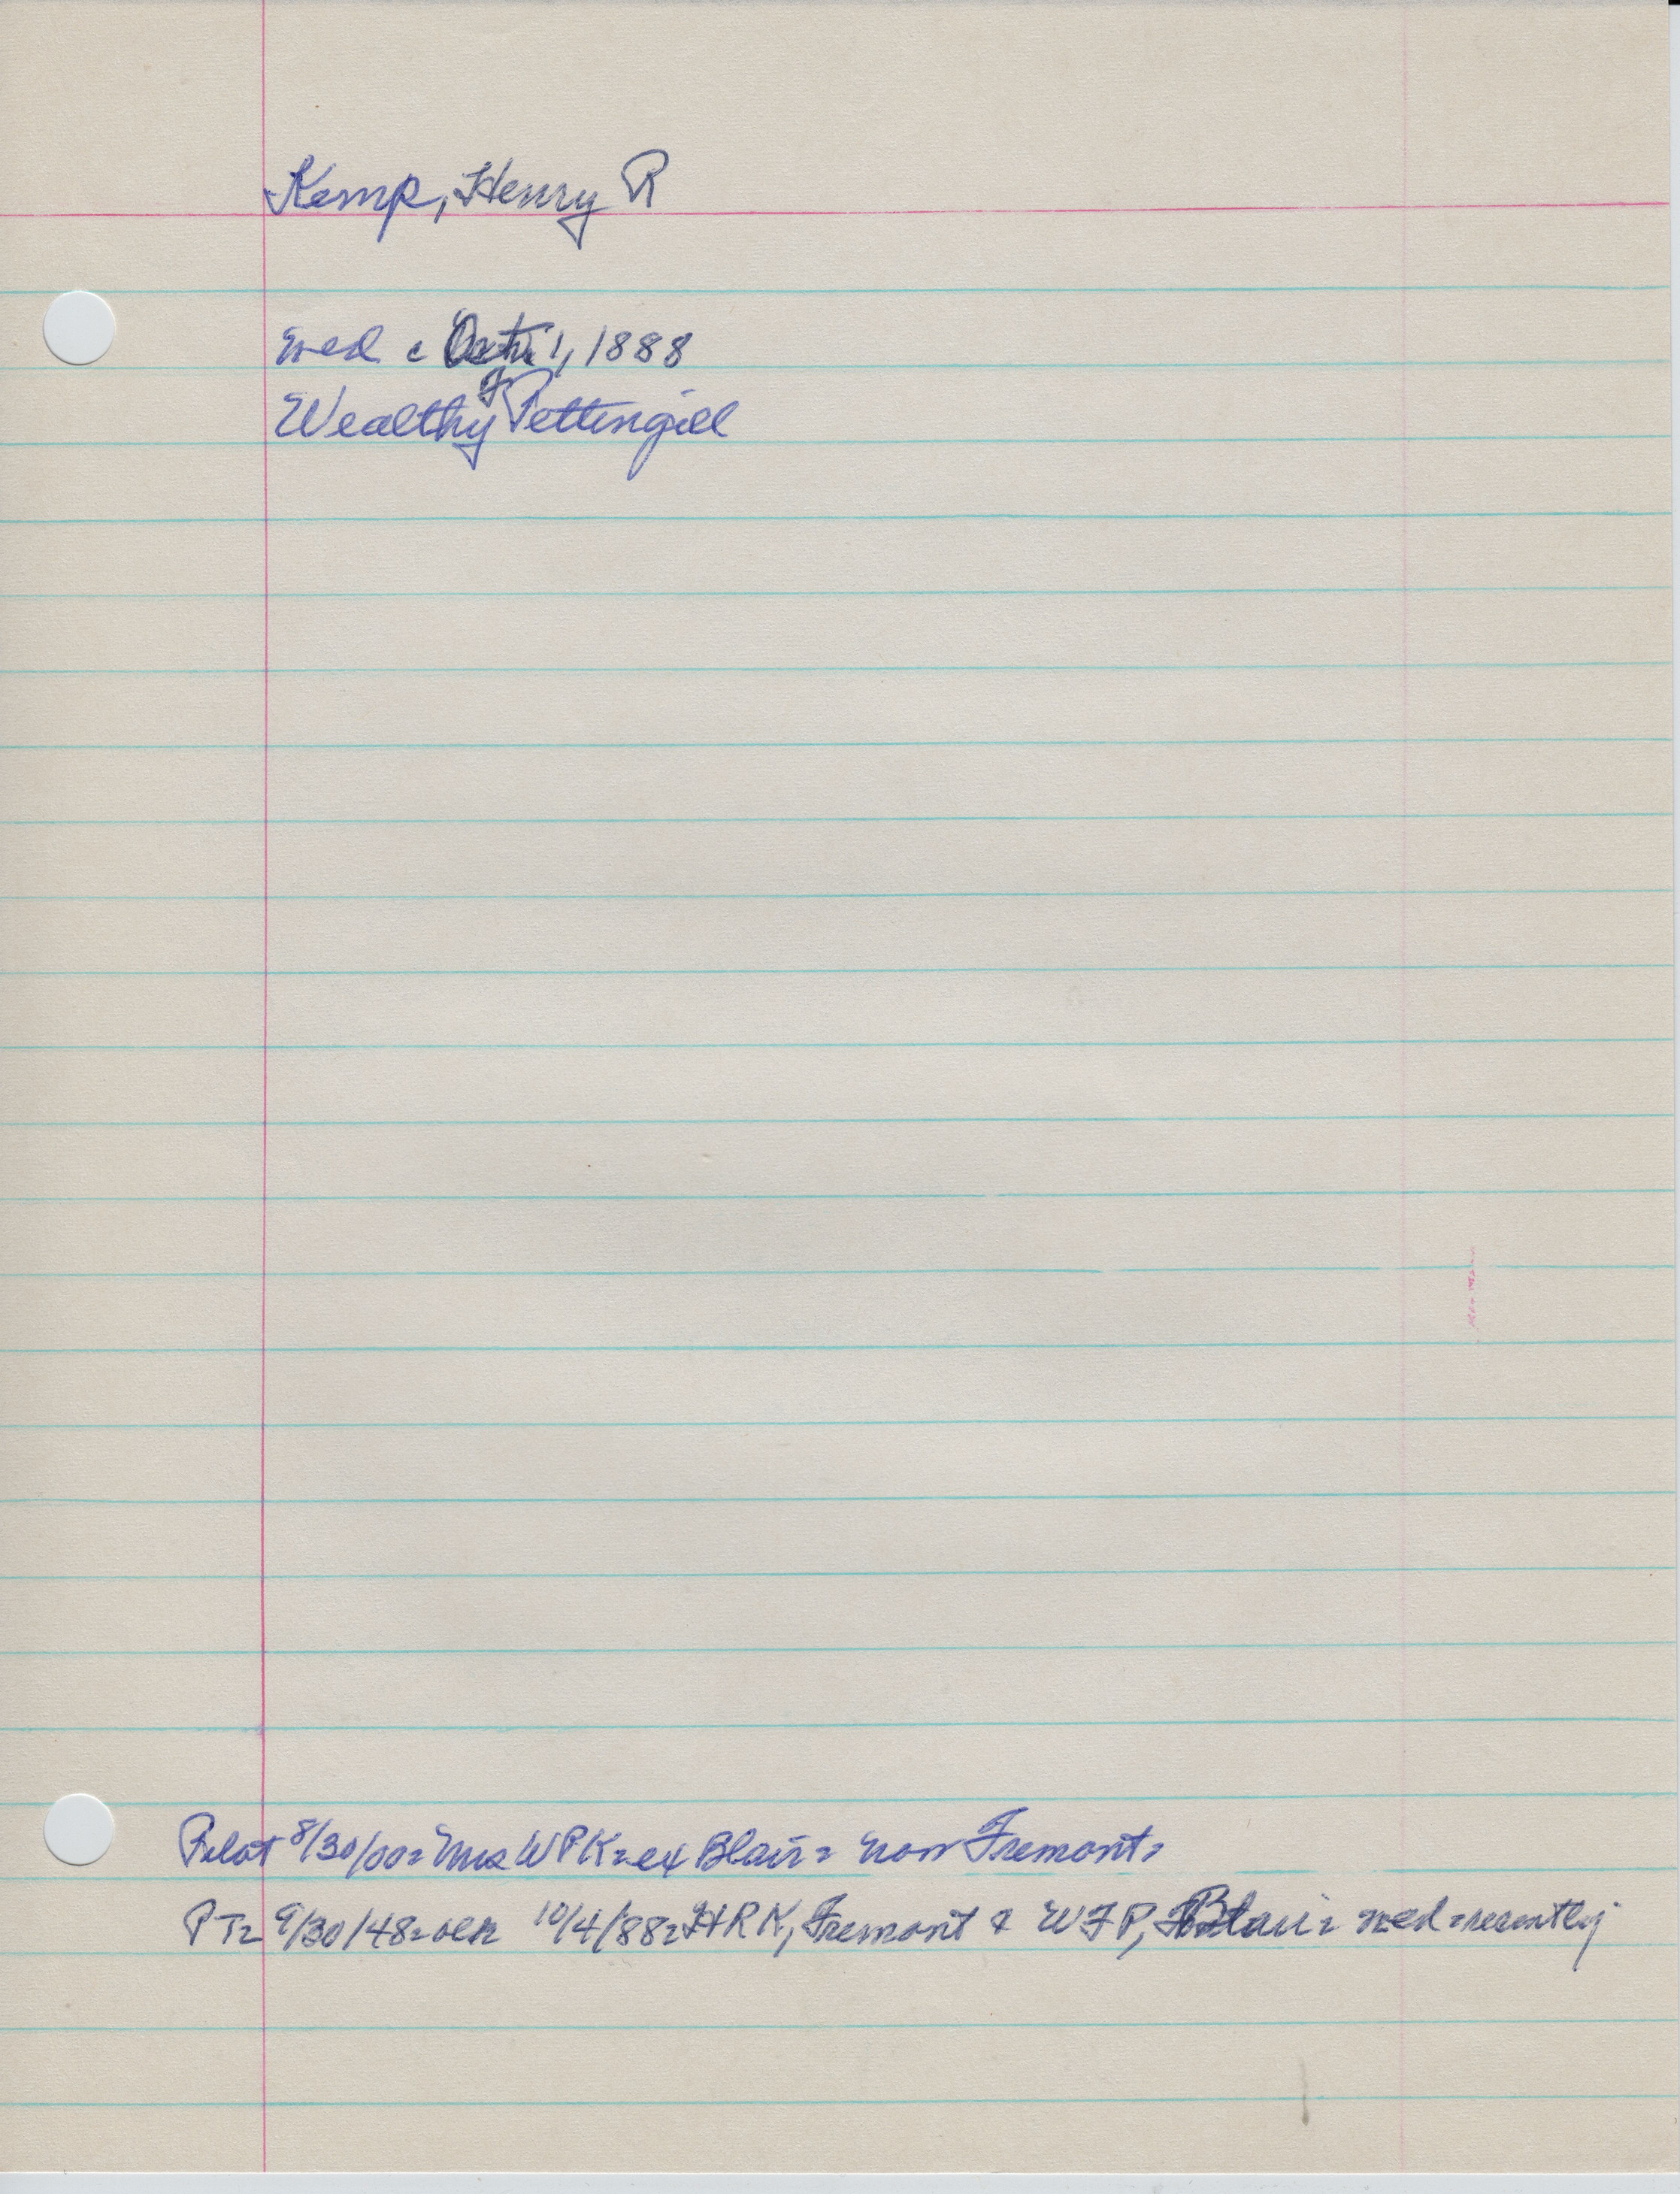 Kemp, Henry R
wed c Oct 1, 1888
Wealthy F Pettingill
Pilot 8/30/00= Mrs WPK= ex Blair= now Fremont=
PT= 9/30/48= 10/4/88= HRK, Fremont & WFP, Blair= wed=recently